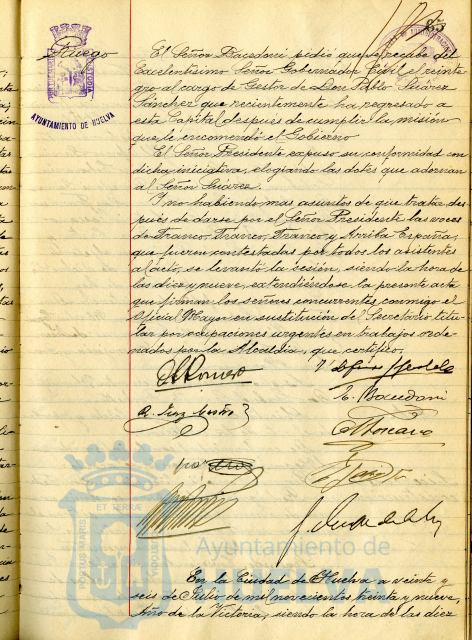 85
Ruego
AYUNTAMIENTO DE HUELVA
El Señor Bacedoni pidió que se recabe del
Excelentísimo Señor Gobernador Civil el reinte
gro al cargo de Gestor de Don Pablo Suárez
Sánchez que recientemente ha regresado a
esta Capital después de cumplir la misión
que le encomendó el Gobierno.
El Señor Presidente expuso su conformidad con
dicha iniciativa, elogiando las dotes que adornan
al Señor Suárez.
Y no habiendo mas asuntos de que tratar, des
pués de darse por el Señor Presidente las voces
de Franco, Franco, Franco y Arriba España,
que fueron contestadas por todos los asistentes
al acto, se levantó la sesión, siendo la hora de
las diez y nueve, extendiéndose la presente acta
que firman los señores concurrentes, conmigo el
Oficial Mayor en sustitución del Secretario titu-
lar por ocupaciones urgentes en trabajos orde-
nados por la Alcaldía, que certifico.
Romero
ET TERRÆ
PORTUS MARIS
Ayuntamiento de
HUELVA
En la Ciudad de Huelva a veinte y
seis de Julio de mil novecientos treinta y nueve,
Año de la Victoria, siendo la hora de las diez